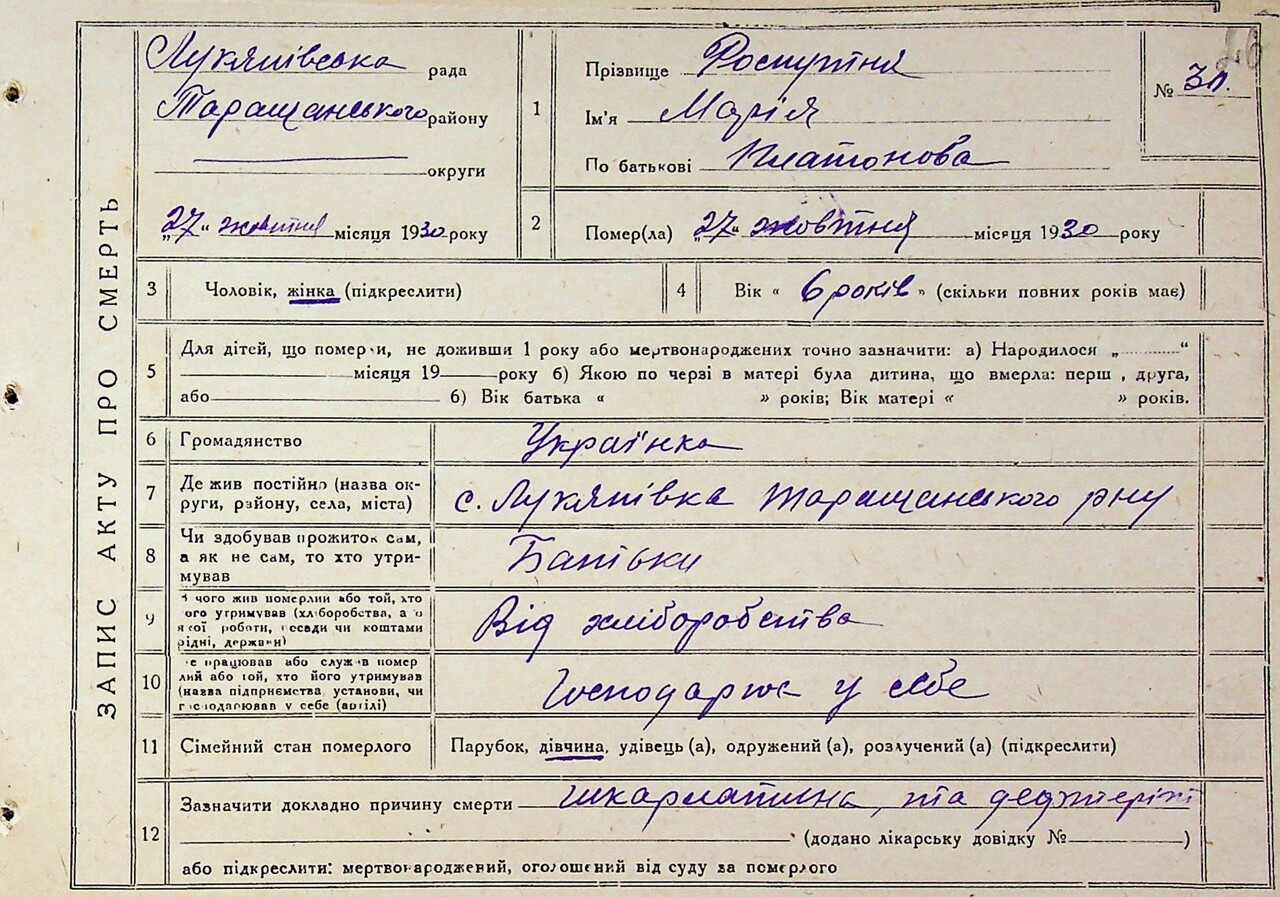 ЗАПИС АКТУ ПРО СМЕРТЬ
Лукянівська рада
Таращанського району
округи
„27“ жовтня місяця 1930 року
1
Прізвище Роспутня
Ім'я Марія
По батькові Платонова
№ 3п.
26
2
Помер(ла) „27“ жовтня місяця 1930 року
3 Чоловік, жінка (підкреслити)
4 Вік « 6 років » (скільки повних років має)
5
Для дітей, що померли, не доживши 1 року або мертвонароджених точно зазначити: а) Народилося „ “
місяця 19 року б) Якою по черзі в матері була дитина, що вмерла: перш , друга,
або б) Вік батька « » років; Вік матері « » років.
6 Громадянство Українка
7 Де жив постійно (назва ок-
руги, району, села, міста) с. Лукянівка Таращанського рну
8 Чи здобував прожиток сам,
а як не сам, то хто утри-
мував Батьки
9 З чого жив померлий або той, хто
його утримував (хліборобства, а о
якої роботи, посади чи коштами
рідні, держави) Від хліборобства
10 Де працював або служив помер
лий або той, хто його утримував
(назва підприємства, установи, чи
господарював у себе (артілі) Господарює у себе
11 Сімейний стан померлого Парубок, дівчина, удівець (а), одружений (а), розлучений (а) (підкреслити)
12
Зазначити докладно причину смерти шкарлатина та дефтеріт
(додано лікарську довідку № )
або підкреслити: мертвонароджений, оголошений від суду за померлого